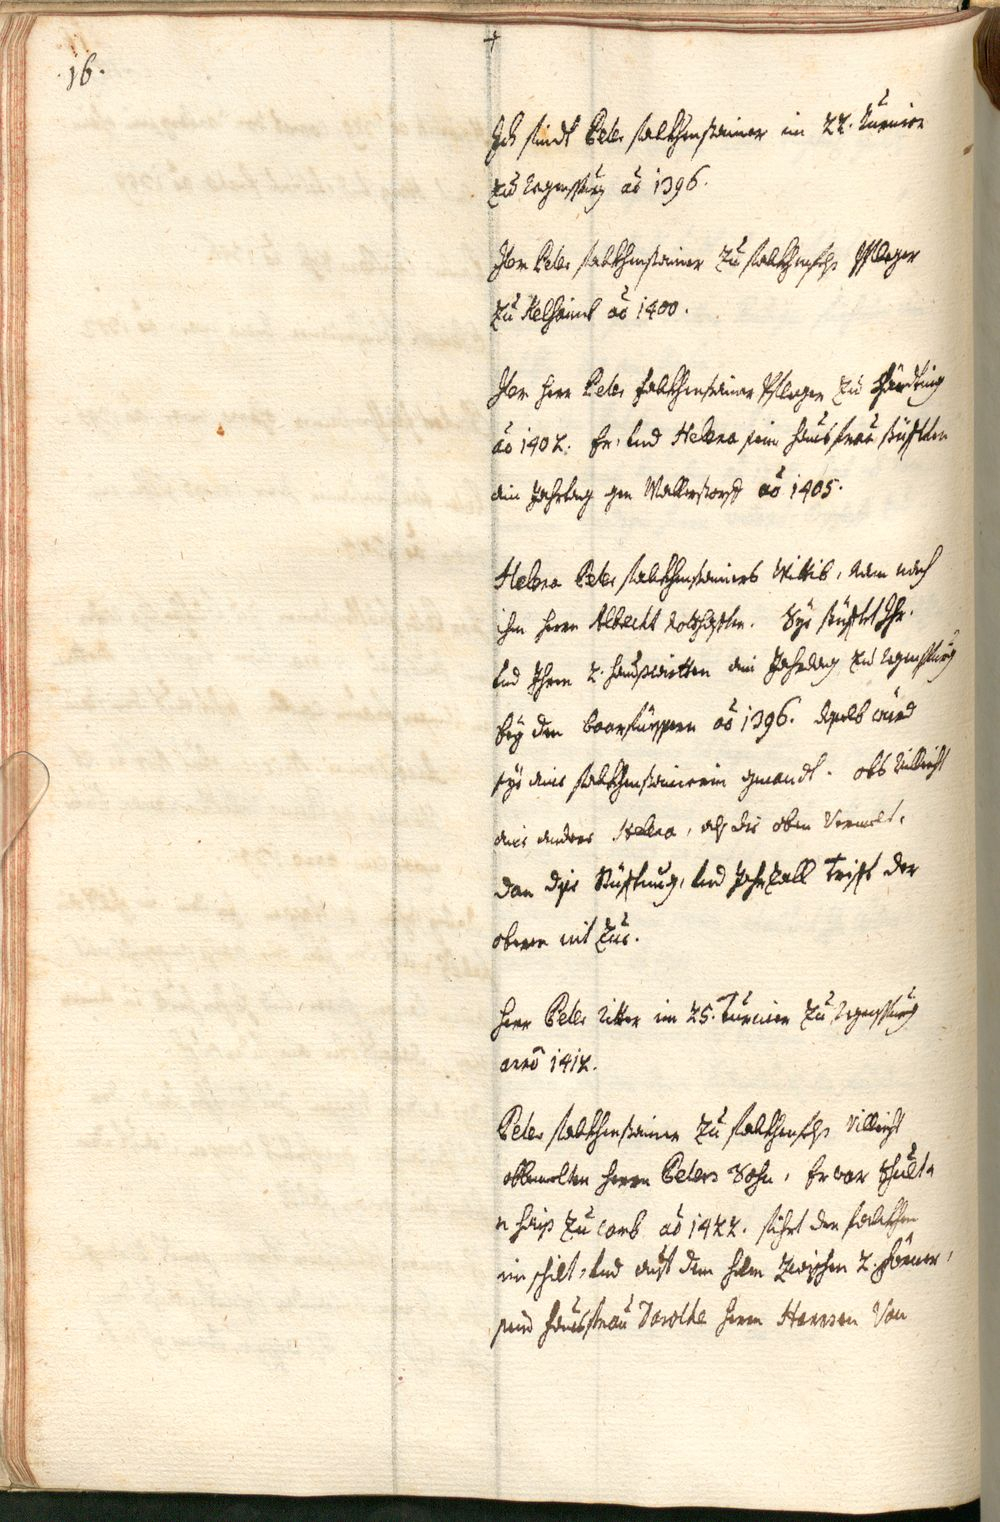 16.
Ich findt Peter Falckhenstainer im 22. Turnier
zu Regenspurg aõ 1396.
Herr Peter Falckhenstainer zu Falckhenfels Pfleger
zu Kelhaimb aõ 1400.
Herr Peter Falckhenstainer Pfleger zu
aõ 1402. Er, und Helena sein hausfrau stüfften
ain Jahrtag gen Wallerstorff aõ 1405.
Helena Peter Falckhenstainers Wittib, nam nach
ihm herrn Albrecht Sye stüfftet Ihr
und Ihren 2. hauswirtten ain Jahrtag zu Regenspurg
bey den aõ 1396. wird
sye ain Falckhenstainerin genandt. obs Villeicht
ain andere Helena, als die oben
dan dise Stüfftung, und Jahrzall trifft der
obern nit zue.
Herr Peter Ritter im 25. Turnier zu Regenspurg
anno 1412.
Peter Falckhenstainer zu Falckhenfels Villeicht
obbemelten herrn Peters Sohn, Er war Schult=
haiß zu Camb aõ 1422. führt den Falckhen
im schilt, und auf dem helm zwischen 2. hörner,
sein hausfrau Dorothe herrn Von